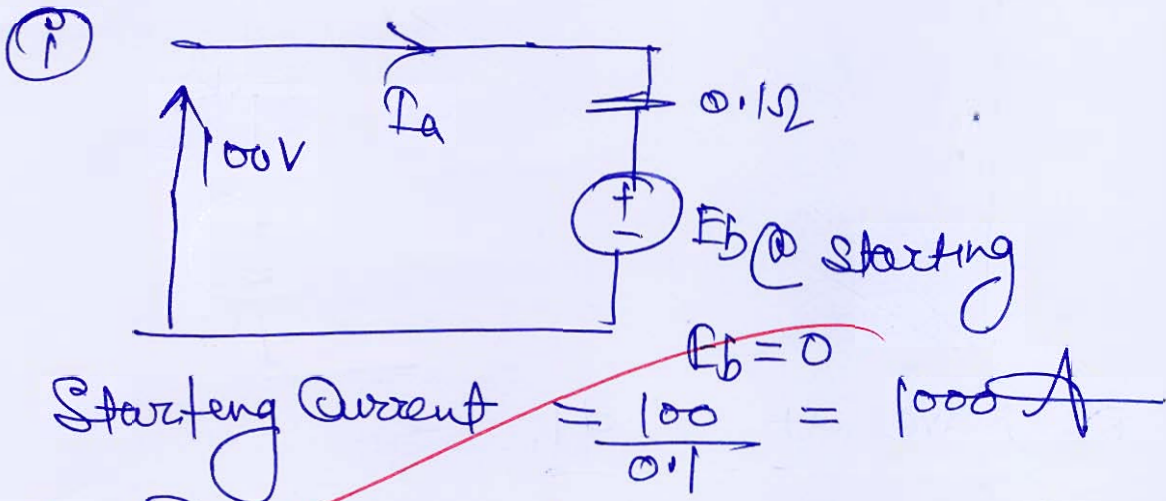 (i)
Ia
0.1Ω
100V
+
-
Eb @ starting
Eb = 0
Starteng Current = 100/0.1 = 1000 A